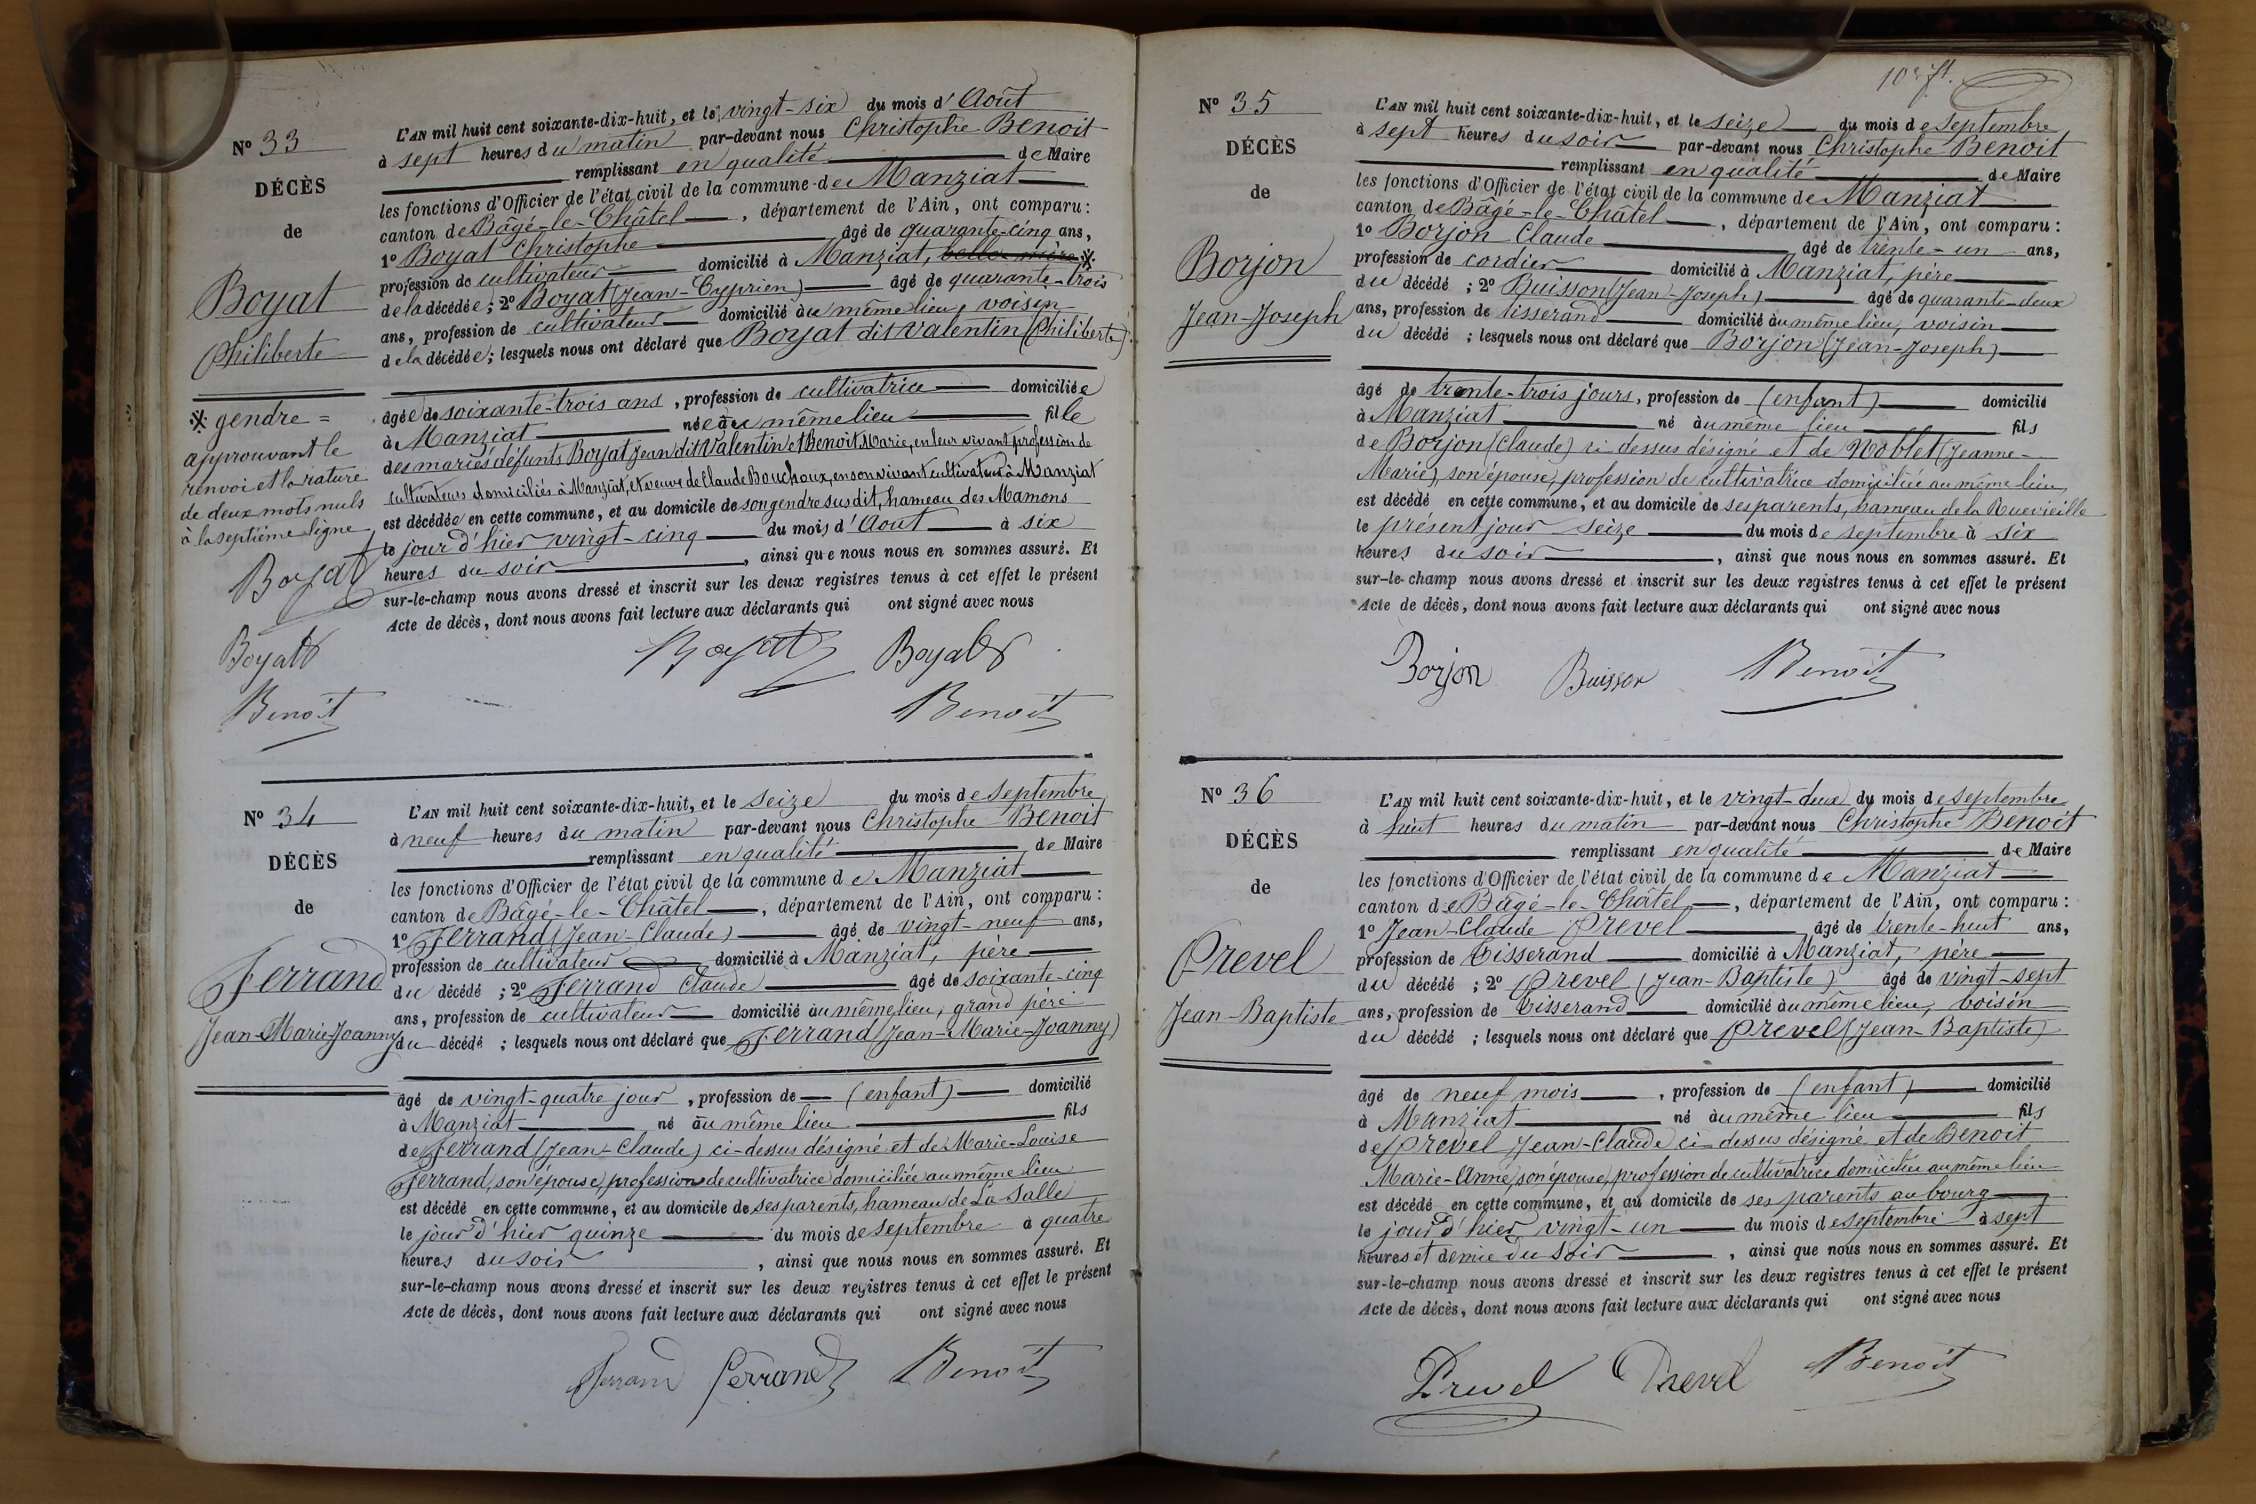 N° 33
DÉCÈS
de
Boyat
Philiberte
※ gendre =
approuvant le
renvoi et la rature
de deux mots nuls
à la septième ligne
Boyat
Boyat
Benoit
L'AN mil huit cent soixante-dix-huit, et le vingt-six du mois d'Août
à sept heures du matin par-devant nous Christophe Benoit
remplissant en qualité de Maire
les fonctions d'Officier de l'état civil de la commune de Manziat
canton de Bâgé-le-Châtel, département de l'Ain, ont comparu :
1° Boyat Christophe âgé de quarante-cinq ans,
profession de cultivateur domicilié à Manziat, belle-mère ※
de la décédée ; 2° Boyat (Jean-Cyprien) âgé de quarante-trois
ans, profession de cultivateur domicilié au même lieu, voisin
de la décédée ; lesquels nous ont déclaré que Boyat dit Valentin (Philiberte)
âgée de soixante-trois ans, profession de cultivatrice domiciliée
à Manziat née au même lieu fille
des mariés défunts Boyat Jean dit Valentin et Benoit Marie, en leur vivant profession de
cultivateurs domiciliés à Manziat, et veuve de Claude Bouchoux, en son vivant cultivateur à Manziat
est décédée en cette commune, et au domicile de son gendre susdit, hameau des Mamons
le jour d'hier vingt-cinq du mois d'Aout à six
heures du soir, ainsi que nous nous en sommes assuré. Et
sur-le-champ nous avons dressé et inscrit sur les deux registres tenus à cet effet le présent
Acte de décès, dont nous avons fait lecture aux déclarants qui ont signé avec nous
Boyat Boyat
Benoit
N° 34
DÉCÈS
de
Ferrand
Jean-Marie-Joanny
L'AN mil huit cent soixante-dix-huit, et le seize du mois de septembre
à neuf heures du matin par-devant nous Christophe Benoit
remplissant en qualité de Maire
les fonctions d'Officier de l'état civil de la commune de Manziat
canton de Bâgé-le-Châtel, département de l'Ain, ont comparu :
1° Ferrand (Jean-Claude) âgé de vingt-neuf ans,
profession de cultivateur domicilié à Manziat, père
du décédé ; 2° Ferrand Claude âgé de soixante-cinq
ans, profession de cultivateur domicilié au même lieu, grand père
du décédé ; lesquels nous ont déclaré que Ferrand (Jean-Marie-Joanny)
âgé de vingt-quatre jour, profession de (enfant) domicilié
à Manziat né au même lieu fils
de Ferrand (Jean-Claude) ci-dessus désigné et de Marie-Louise
Ferrand, son épouse, profession de cultivatrice domiciliée au même lieu
est décédé en cette commune, et au domicile de ses parents, hameau de La Salle
le jour d'hier quinze du mois de septembre à quatre
heures du soir, ainsi que nous nous en sommes assuré. Et
sur-le-champ nous avons dressé et inscrit sur les deux registres tenus à cet effet le présent
Acte de décès, dont nous avons fait lecture aux déclarants qui ont signé avec nous
Ferrand Ferrand Benoit
N° 35
DÉCÈS
de
Borjon
Jean-Joseph
L'AN mil huit cent soixante-dix-huit, et le seize du mois de septembre
à sept heures du soir par-devant nous Christophe Benoit
remplissant en qualité de Maire
les fonctions d'Officier de l'état civil de la commune de Manziat
canton de Bâgé-le-Châtel, département de l'Ain, ont comparu :
1° Borjon Claude âgé de trente-un ans,
profession de cordier domicilié à Manziat, père
du décédé ; 2° Buisson (Jean-Joseph) âgé de quarante-deux
ans, profession de tisserand domicilié au même lieu, voisin
du décédé ; lesquels nous ont déclaré que Borjon (Jean-Joseph)
âgé de trente-trois jours, profession de (enfant) domicilié
à Manziat né au même lieu fils
de Borjon (Claude) ci dessus désigné et de Noblet (Jeanne-
Marie) son épouse, profession de cultivatrice domiciliée au même lieu,
est décédé en cette commune, et au domicile de ses parents, hameau de la Ruevieille
le présent jour seize du mois de septembre à six
heures du soir, ainsi que nous nous en sommes assuré. Et
sur-le-champ nous avons dressé et inscrit sur les deux registres tenus à cet effet le présent
Acte de décès, dont nous avons fait lecture aux déclarants qui ont signé avec nous
Borjon Buisson Benoit
N° 36
DÉCÈS
de
Prevel
Jean-Baptiste
L'AN mil huit cent soixante-dix-huit, et le vingt-deux du mois de septembre
à huit heures du matin par-devant nous Christophe Benoit
remplissant en qualité de Maire
les fonctions d'Officier de l'état civil de la commune de Manziat
canton de Bâgé-le-Châtel, département de l'Ain, ont comparu :
1° Jean-Claude Prevel âgé de trente-huit ans,
profession de Tisserand domicilié à Manziat, père
du décédé ; 2° Prevel (Jean-Baptiste) âgé de vingt-sept
ans, profession de Tisserand domicilié au même lieu, voisin
du décédé ; lesquels nous ont déclaré que Prevel (Jean-Baptiste)
âgé de neuf mois, profession de (enfant) domicilié
à Manziat né au même lieu fils
de Prevel Jean-Claude ci-dessus désigné et de Benoit
Marie-Anne, son épouse, profession de cultivatrice domiciliée au même lieu
est décédé en cette commune, et au domicile de ses parents au bourg
le jour d'hier vingt-un du mois de septembre à sept
heures et demie du soir, ainsi que nous nous en sommes assuré. Et
sur-le-champ nous avons dressé et inscrit sur les deux registres tenus à cet effet le présent
Acte de décès, dont nous avons fait lecture aux déclarants qui ont signé avec nous
Prevel Prevel Benoit